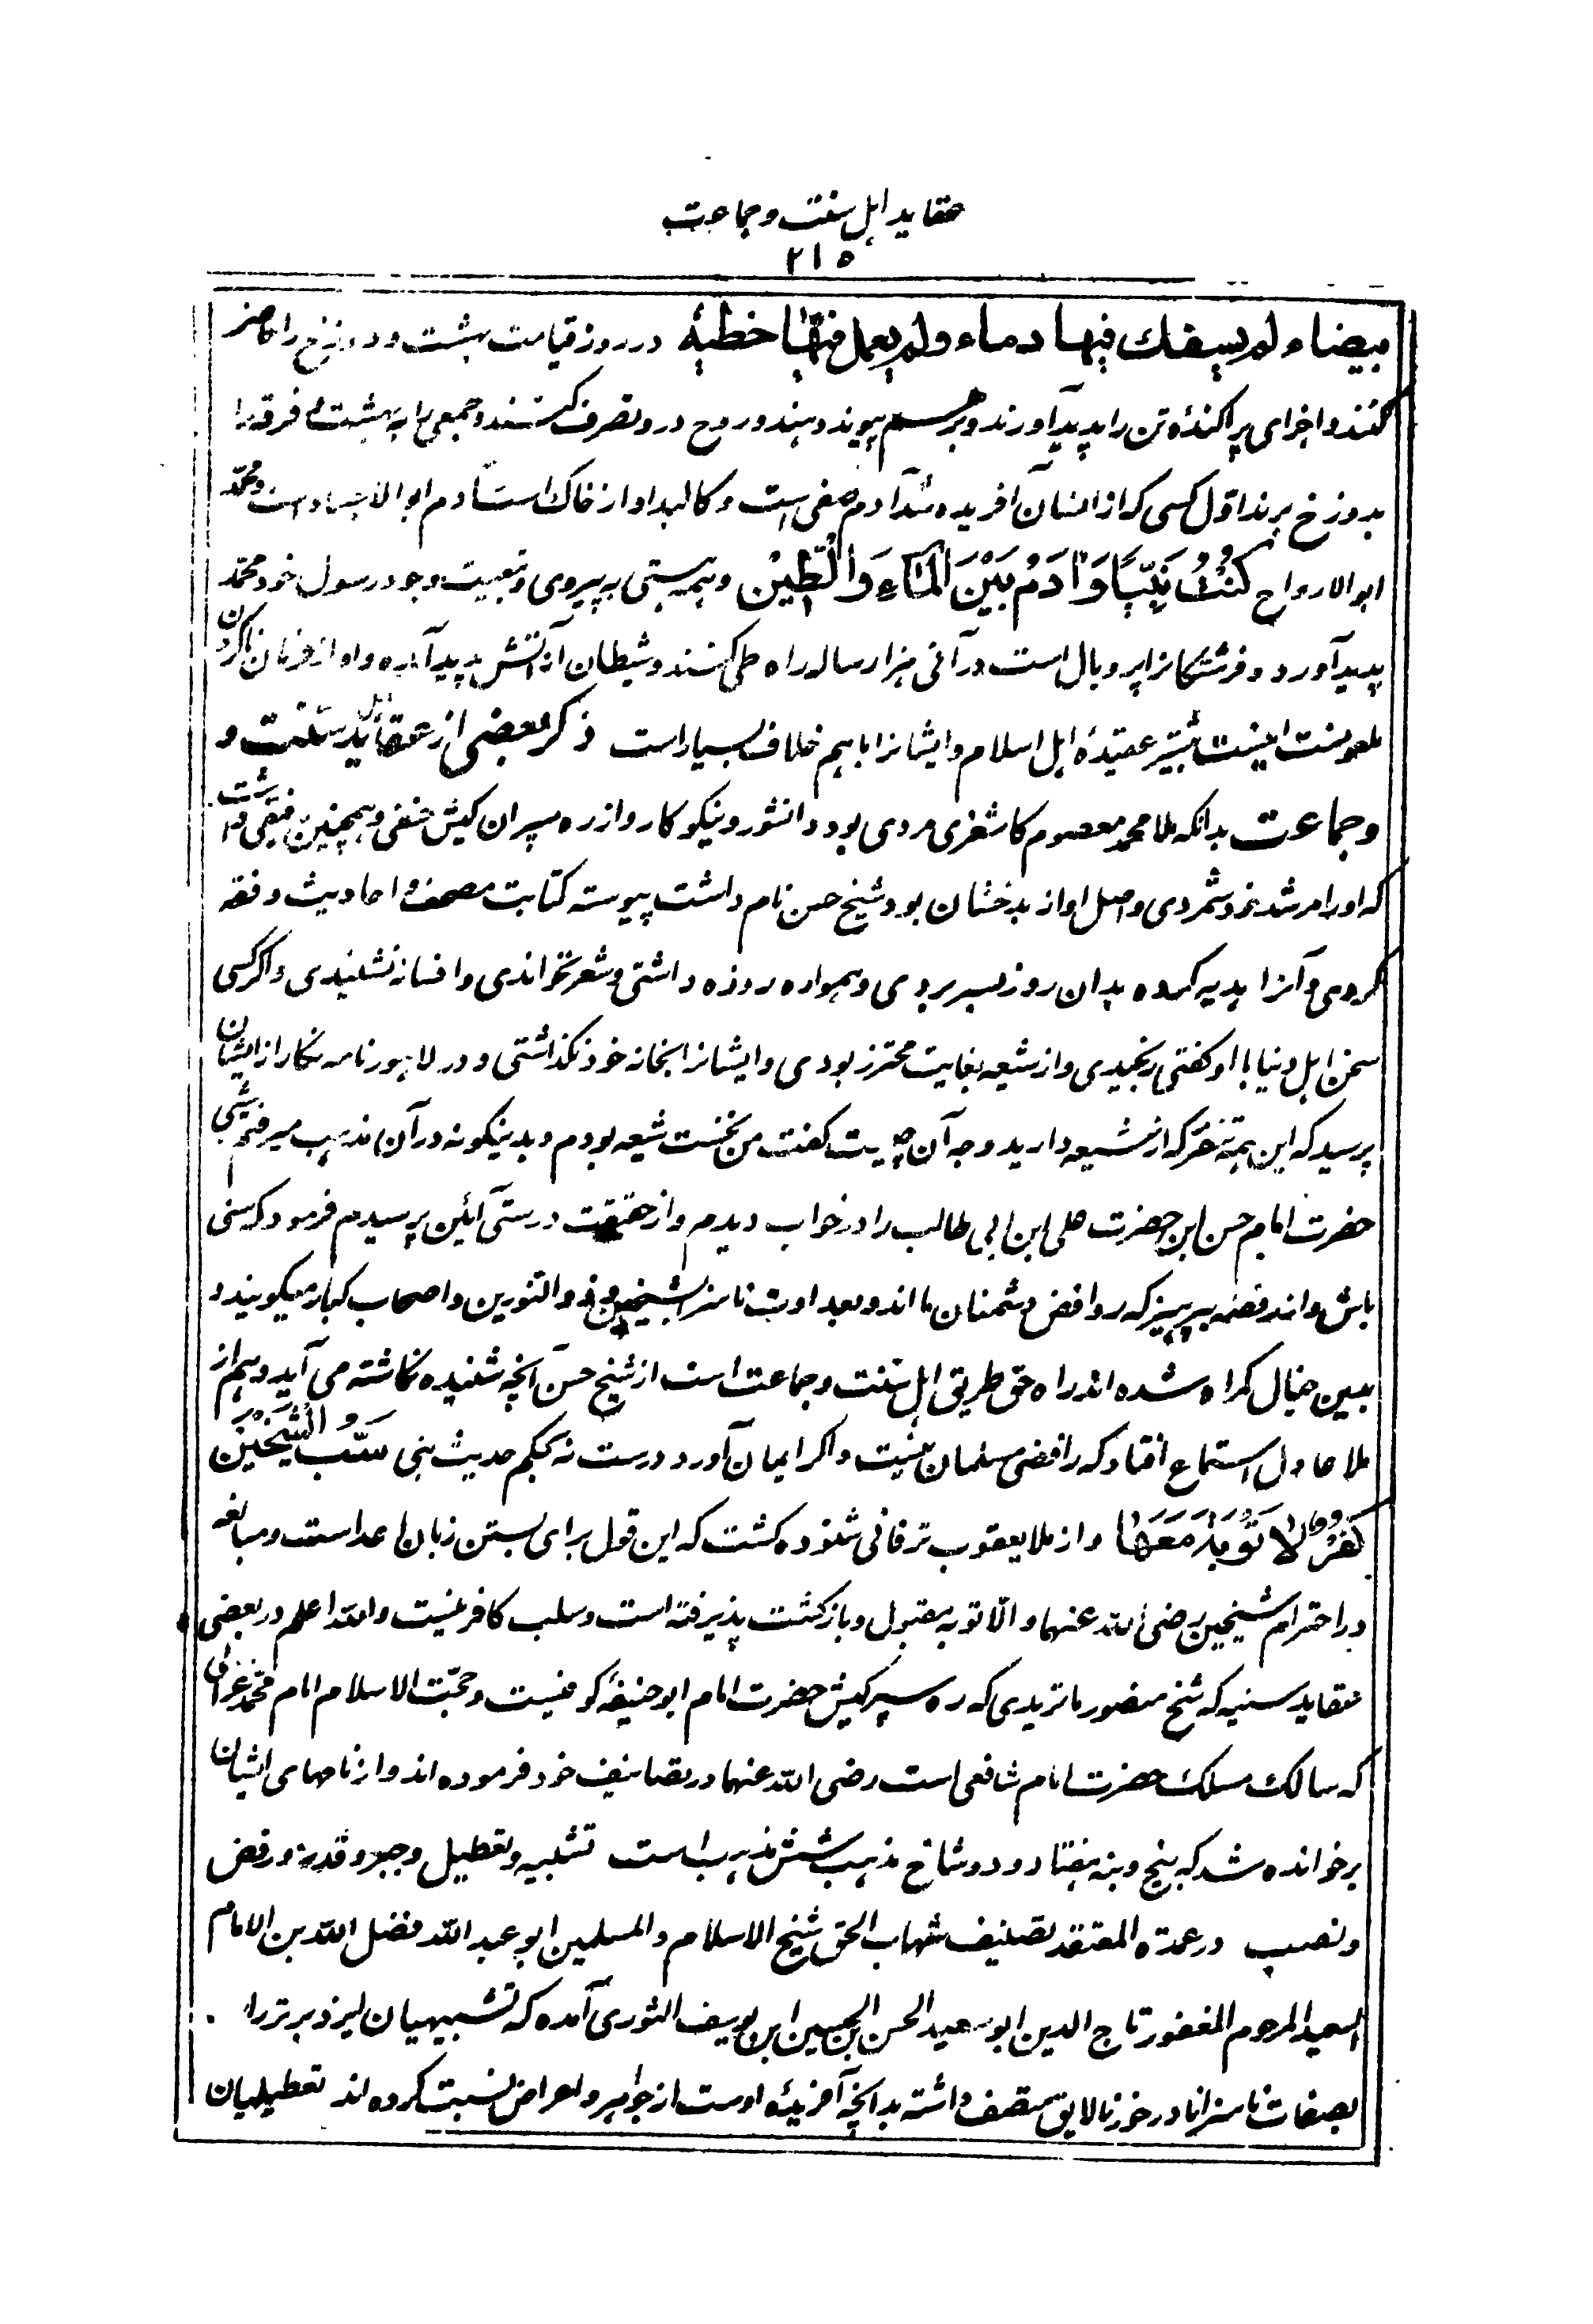 عقاید اهل سنت و جماعت
۲۱۵
بیضاء ولم یسفك فیها دماء ولم یعمل فیها خطیئة در روز قیامت بهشت و دوزخ را حاضر
کنند و اجزای پراکندهٔ تن را پدید آورند و بر هم پیوند دهند و روح درو تصرف کنند و جمعی را به بهشت و فرقه را
بدوزخ برند اوّل کسی که از انسان آفریده شد آدم صفی است و کالبد او از خاک است آدم ابوالاجساد است و محمّد
ابوالارواح كُنْتُ نَبِيًّا وَآدَمُ بَيْنَ الْمَآءِ وَالْطِّيْنِ و همه هستی به پیروی و تبعیت وجود رسول خود محمّد
پدید آورد و فرشتگانرا پر و بال است در آنی هزار ساله راه طی کنند و شیطان از آتش پدید آمده و او از فرمان ناکردن
ملعونست اینست بیشتر عقیدهٔ اهل اسلام و ایشانرا باهم خلاف بسیار است ذکر بعضی از عقائد اهل سنّت و
وجماعت بدانکه ملا محمد معصوم کاشغری مردی بود دانشور و نیکوکار و از ره سپران کیش حنفی و همچنین فیقی داشت
که او را مرشد خود شمردی و اصل او از بدخشان بود شیخ حسن نام داشت پیوسته کتابت مصحف و احادیث و فقه
کردی و آنرا هدیه کرده بدان روز بسر بردی و همواره روزه داشتی و شعر نخواندی و افسانه نشنیدی و اگر کسی
سخن اهل دنیا با او گفتی رنجیدی و از شیعه بغایت محترز بودی و ایشانرا بخانه خود نگذاشتی و در لاهور نامه نگار از ایشان
پرسید که این همه تنفر که از شیعه دارید وجه آن چیست گفت من نخست شیعه بودم و بدینگونه در آن مذهب میرفتم شبی
حضرت امام حسن ابن حضرت علی ابن ابی طالب را در خواب دیدم و از حقیقت درستی آئین پرسیدم فرمود که سنی
باش و از رفضه بپرهیز که روافض دشمنان ما اند و بعداوت ناسزا بشیخین و ذوالنّورین و اصحاب کبار میگویند و
ببین خیال گمراه شده اند راه حق طریق اهل سنّت و جماعت است از شیخ حسن آنچه شنیده نگاشته می آید و هم از
ملا عادل استماع افتاد که رافضی مسلمان نیست و اگر ایمان آورد درست نه بحکم حدیث نبی سَبُّ الْشَّيْخَيْنِ
كُفْرٌ لَا تَوْبَةَ مَعَهَا و از ملا یعقوب ترفانی شنوده گشت که این قول برای بستن زبان اعداست و مبالغه
در احترام شیخین رضی الله عنهما و الّا توبه مقبول و بازگشت پذیرفته است و سلب کافر نیست والله اعلم در بعضی
عقاید سنیه که شیخ منصور ماتریدی که ره سپر کیش حضرت امام ابوحنیفهٔ کوفیست و حجّت الاسلام امام محمّد غزالی
که سالک مسلک حضرت امام شافعی است رضی الله عنهما در تصانیف خود فرموده اند و از نامهای ایشان
برخوانده شد که بیخ و بنه هفتاد و دو شاخ مذهب شش مذهب است تشبیه و تعطیل و جبر و قدر و رفض
و نصب در عمدة المعتقد تصنیف شهاب الحق شیخ الاسلام والمسلمین ابو عبد الله فضل الله بن الامام
السعید المرحوم المغفور تاج الدین ابو سعید الحسن بن الحسین ابن یوسف الثوری آمده که تشبیهیان ایزد برتر را
بصفات ناسزا نا درخور نالایق متصف داشته بدانچه آفریدهٔ اوست از جواهر و اعراض نسبت کرده اند تعطیلیان